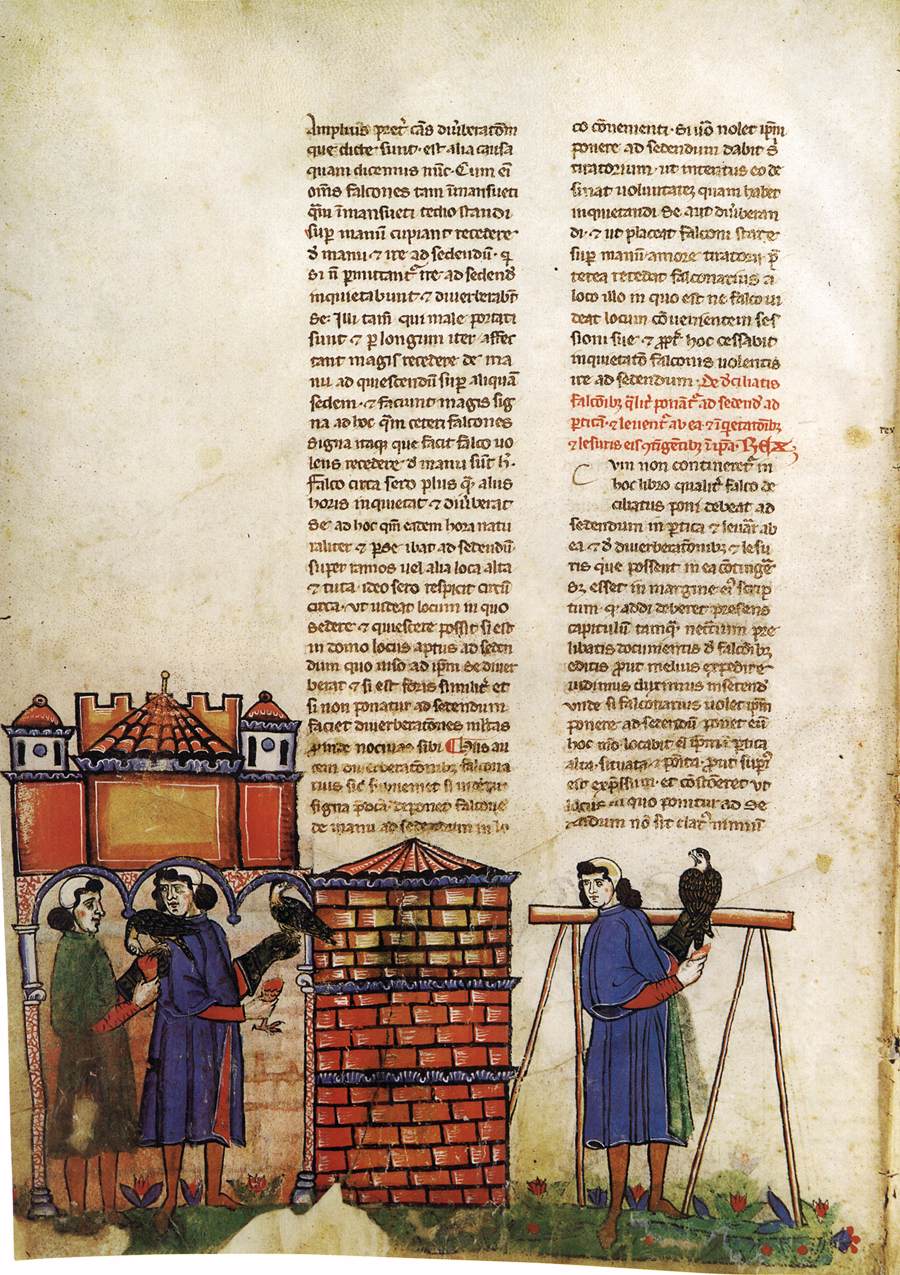 Amplius pret̉ cãs diũberatõm
que dicte sunt · est alia causa
quam dicemus nũc · Cum eĩ
om̃s falcones tam ĩmansueti
q̃m ĩmansueti tedio standi
sup̱ manũ cupiant recedere
đ manu · ⁊ ire ad sedendũ · q̵
si ñ ꝑmittant̃ ire ad sedend̉
inquietabunt · ⁊ diuerberabt̃
se · Illi tam̃ qui male portati
sunt ⁊ ꝑ longum iter affec
tant magis recedere de ma
nu ad quiescendũ suꝑ aliquã
sedem · ⁊ faciunt magis sig
na ad hoc q̃m ceteri falcones
Signa itaq̃ que facit falco uo
lens recedere đ manu sũt h̃ ·
Falco circa sero plus q̃ aliis
horis inquietat ⁊ diũberat
se ad hoc qm̃ eadem hora natu
raliter ⁊ ꝑ se ibat ad sedendũ ·
super ramos uel alia loca alta
⁊ tuta · ideo sero respicit circũ
circa · ut uideat locum in quo
sedere ⁊ quiescere possit si est
in domo locus aptus ad seden
dum quo uiso ad ip̃m se diuer
berat ⁊ si est foris similit̃ et
si non ponatur ad sedendum
faciet diuerberatões m̃ltas
ꝓinde nociuas sibi Hiis au
tem diuerberatõnibꝫ falcona
rius sic subueniet si
signa p̃dca deponet falcone
de manu ad sedendum in lo
co cõuenienti · Si ũo nolet ip̃m
ponere ad sedendum dabit s̉
tiratorium · ut intentus eo de
sinat uoluntatẽ quam habet
inquietandi se aut diũberan
di · ⁊ ut placeat falconi stare
suꝑ manũ amore tiratorii p̃
terea recedat falconarius a
loco illo in quo est ne falco ui
deat locum cõuenientem ses
sioni sue ⁊ ꝓpt̃ hoc cessabit
inquietatõ falconis uolentis
ire ad sedendum · De đciliatis
falcõibꝫ q̃lit̃ ponãt̃ ad sedend̉ ad
ꝑticã · ⁊ leuent̃ ab ea · ⁊ ĩquietatõibꝫ
⁊ lesuris eis ↄtĩgẽtibꝫ ĩ ip̃a · REX
Cvm non contineret̃ in
hoc libro qualit̃ falco de
ciliatus poni debeat ad
sedendum in ꝑtica ⁊ leuar̃ ab
ea · ⁊ đ diuerberatõnibꝫ ⁊ lesu
ris que possent in ea cõtinge̾
Sꝫ esset in margine eĩ scrip
tum · q̵ addi deberet presens
capitulũ tamq̃ neccr̃ium pre
libatis documentis đ falcõibꝫ
editis ꝓut melius expedire
uidimus duximus inserend̉
vnde si falconarius uolet ip̃m
ponere ad sedendũ ponet eũ
hoc mõ locabit ei ip̃m ĩ ꝑtica
alta · situata ⁊ posita · ꝓut supi̾
est exp̃ssum · et cõsideret ut
locus in quo ponitur ad se
dendum nõ sit clar̃ nimiũ
rex